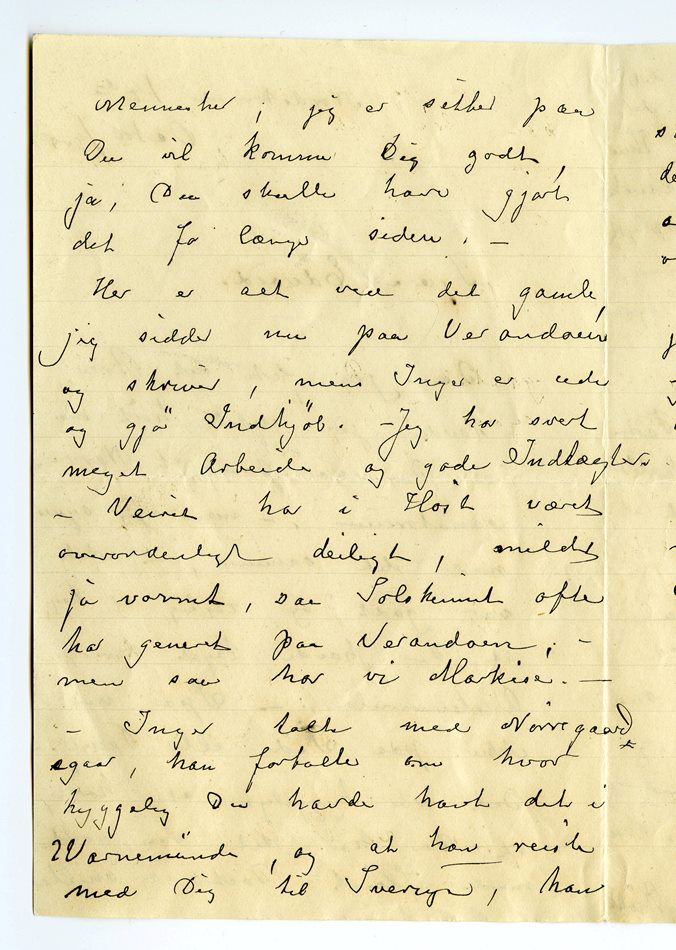 Mennesker, jeg er sikker paa
Du vil komme Dig godt,
ja, Du skulle have gjort
det for længe siden. –
Her er alt ved det gamle,
jeg sidder nu paa Verandaen
og skriver, mens Inger er ude
og gjör Indkjöb. – Jeg har svært
meget Arbeide og gode Indtægter.
– Veiret har i Höst været
overordenligt deiligt, mildt
ja varmt, saa Solskinnet ofte
har generet paa Verandaen, –
men saa har vi Markise. –
– Inger talte med Nörregaard
igaar, han fortalte om hvor
hyggelig Du havde havt det i
Warnemünde, og at han reiste
med Dig til Sverige, han